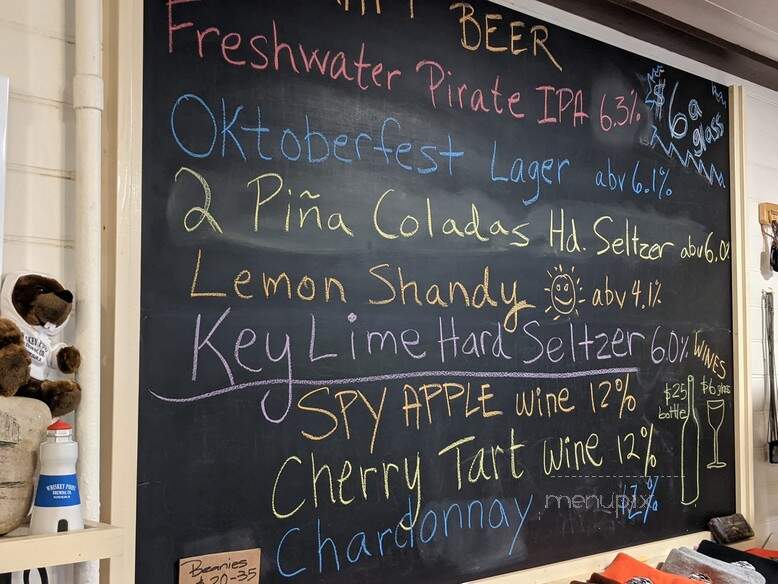 BEER
Freshwater Pirate IPA 6.3%
$6 a glass
Oktoberfest Lager abv 6.1%
2 Piña Coladas Hd. Seltzer abv 6.0%
Lemon Shandy abv 4.1%
Key Lime Hard Seltzer 6.0%
WINES
$25 bottle
$6 glass
SPY APPLE wine 12%
Cherry Tart wine 12%
Chardonnay 12%
menupix
WHISKEY POINT
BREWING CO.
Beanies
$20-35